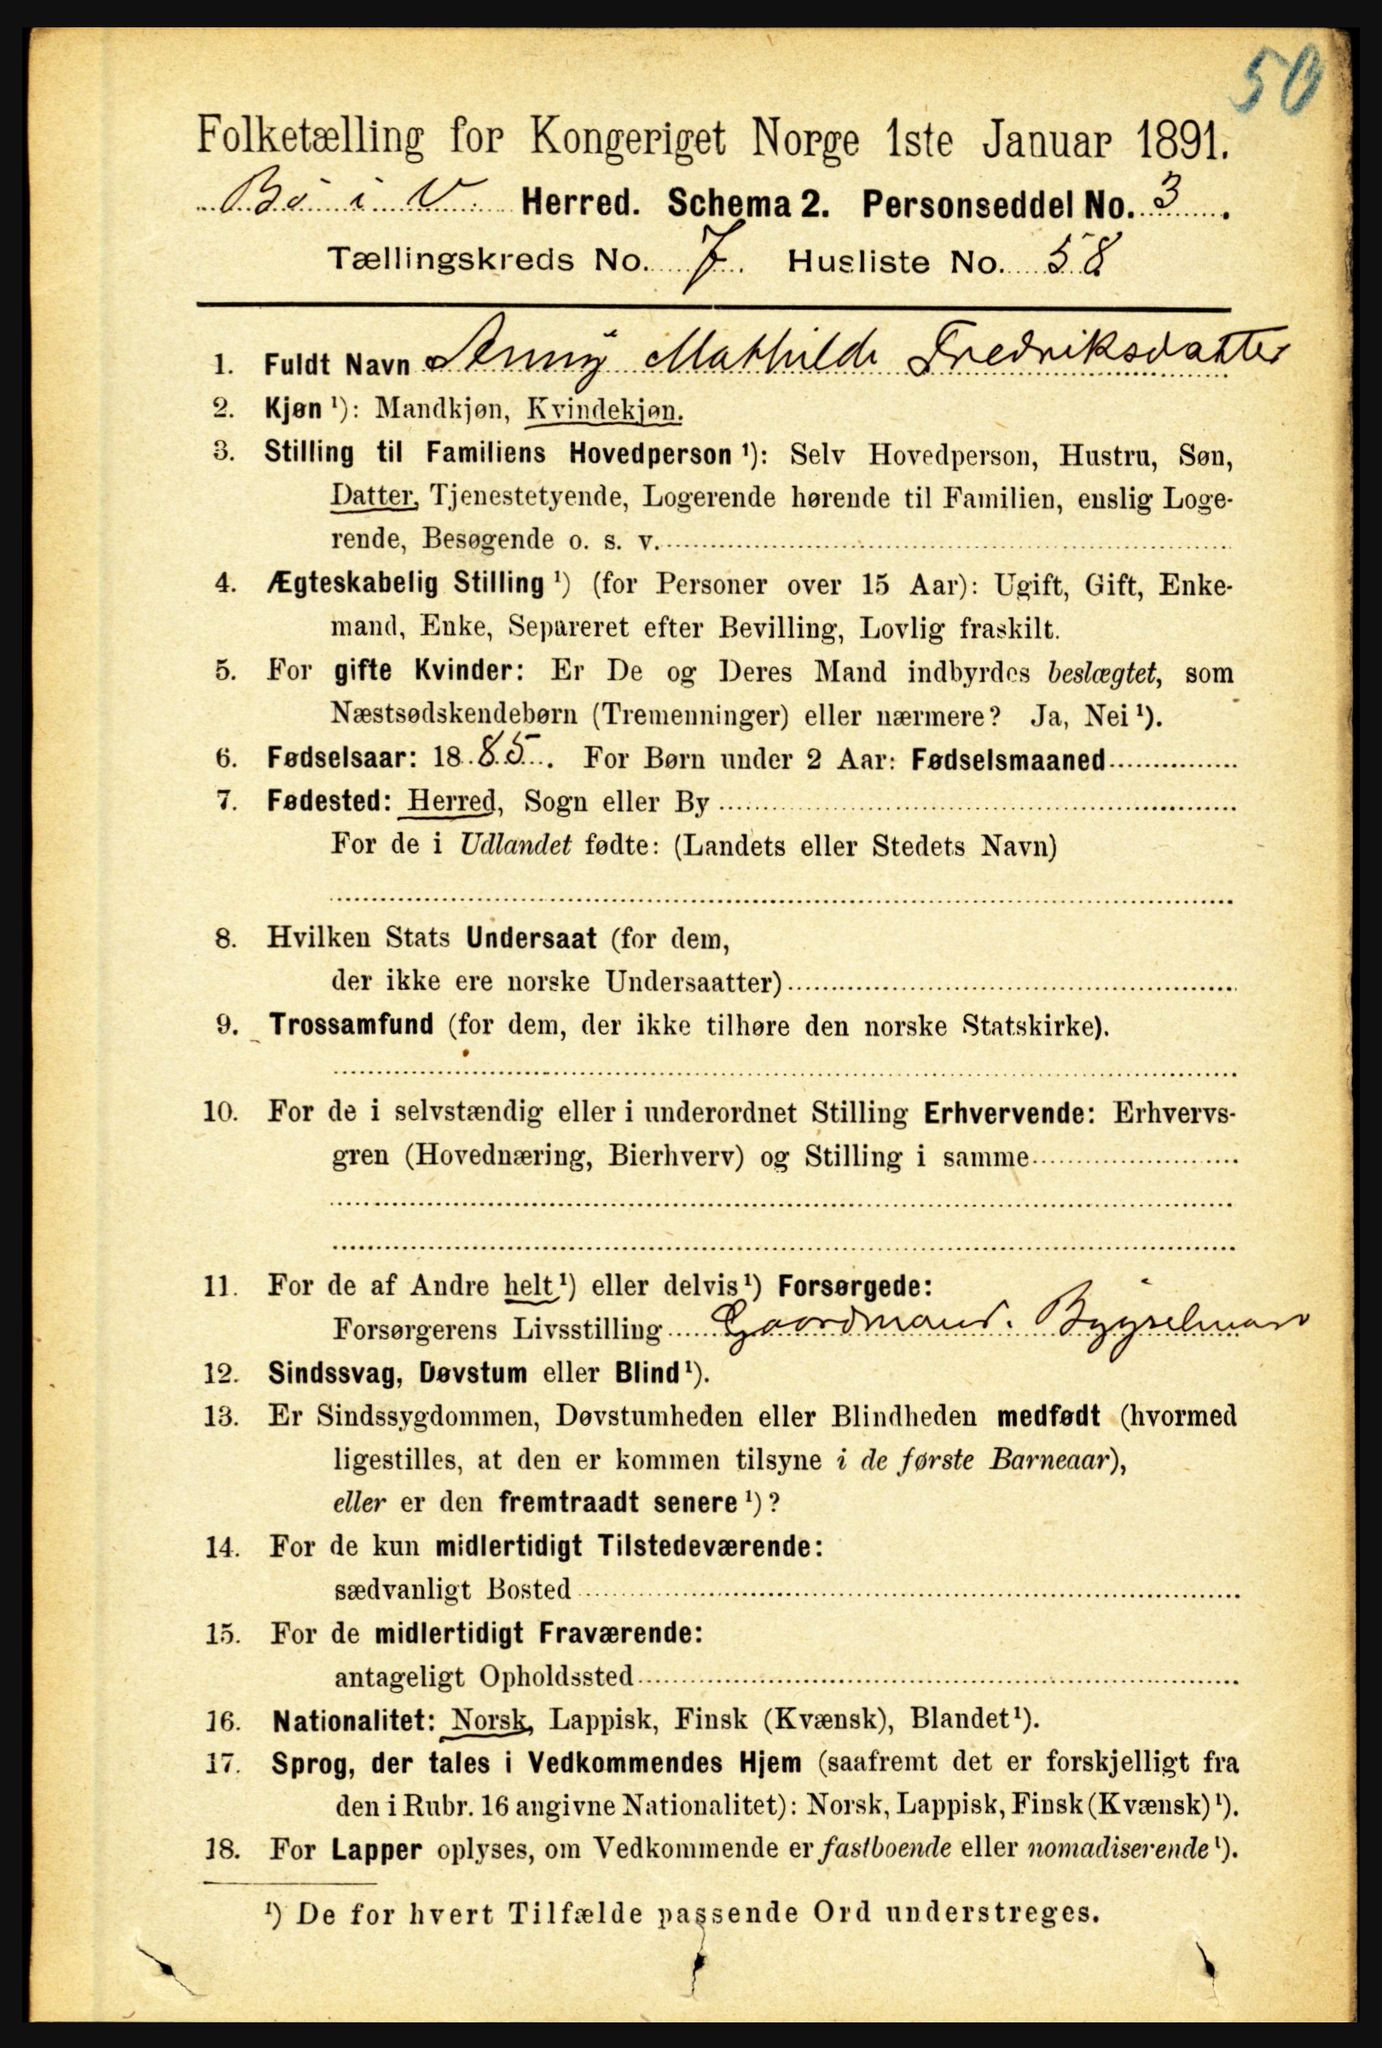 50
Folketælling for Kongeriget Norge 1ste Januar 1891.
Bø i V. Herred. Schema 2. Personseddel No. 3.
Tællingskreds No. 7. Husliste No. 58
1. Fuldt Navn Anny Mathilde Fredriksdatter
2. Kjøn ¹): Mandkjøn, Kvindekjøn.
3. Stilling til Familiens Hovedperson ¹): Selv Hovedperson, Hustru, Søn,
Datter, Tjenestetyende, Logerende hørende til Familien, enslig Loge-
rende, Besøgende o. s. v.
4. Ægteskabelig Stilling ¹) (for Personer over 15 Aar): Ugift, Gift, Enke-
mand, Enke, Separeret efter Bevilling, Lovlig fraskilt.
5. For gifte Kvinder: Er De og Deres Mand indbyrdes beslægtet, som
Næstsødskendebørn (Tremenninger) eller nærmere? Ja, Nei ¹).
6. Fødselsaar: 1885. For Børn under 2 Aar: Fødselsmaaned
7. Fødested: Herred, Sogn eller By
For de i Udlandet fødte: (Landets eller Stedets Navn)
8. Hvilken Stats Undersaat (for dem,
der ikke ere norske Undersaatter)
9. Trossamfund (for dem, der ikke tilhøre den norske Statskirke).
10. For de i selvstændig eller i underordnet Stilling Erhvervende: Erhvervs-
gren (Hovednæring, Bierhverv) og Stilling i samme
11. For de af Andre helt ¹) eller delvis ¹) Forsørgede:
Forsørgerens Livsstilling Gaardmand. Bygselmand
12. Sindssvag, Døvstum eller Blind ¹).
13. Er Sindssygdommen, Døvstumheden eller Blindheden medfødt (hvormed
ligestilles, at den er kommen tilsyne i de første Barneaar),
eller er den fremtraadt senere ¹)?
14. For de kun midlertidigt Tilstedeværende:
sædvanligt Bosted
15. For de midlertidigt Fraværende:
antageligt Opholdssted
16. Nationalitet: Norsk, Lappisk, Finsk (Kvænsk), Blandet ¹).
17. Sprog, der tales i Vedkommendes Hjem (saafremt det er forskjelligt fra
den i Rubr. 16 angivne Nationalitet): Norsk, Lappisk, Finsk (Kvænsk) ¹).
18. For Lapper oplyses, om Vedkommende er fastboende eller nomadiserende ¹).
¹) De for hvert Tilfælde passende Ord understreges.